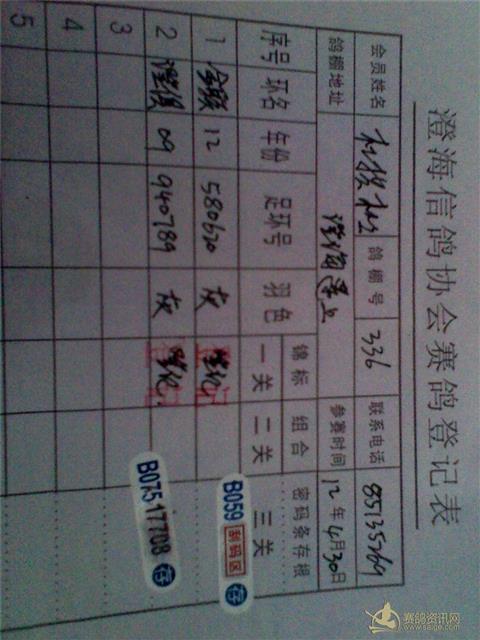 澄海信鸽协会赛鸽登记表
会员姓名 鸽棚号 336 联系电话 85135769
鸽棚地址 澄海莲上 参赛时间 12年4月30日
序号 环名 年份 足环号 羽色 锦标 组合 密码条存根
一关 二关 三关
1 12 580620 灰 登记 B059 刮码区 存
2 09 940789 灰 登记 B07517708 存
3
4
5
赛鸽资讯网
www.saige.com